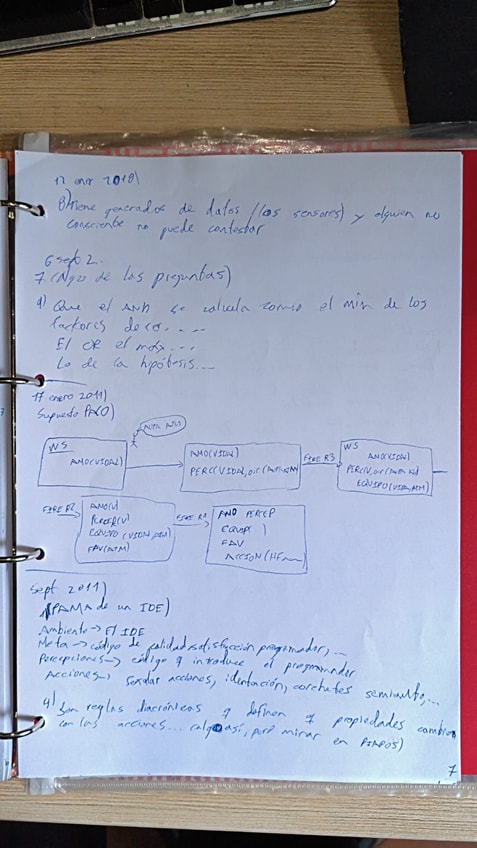 17 enr 2018)
B) Tiene generados de datos (los sensores) y alguien no
consciente no puede contestar
6 sept 2.
7. (Algo de las preguntas)
a) Que el AND se calcula como el min de los
factores de co....
El OR el max...
Lo de la hipótesis...
17 enero 2011)
Supuesto PACO)
WS
AMO(VIDAL)
AMO(VIDAL)
PERC(VIDAL, oir
FIRE R3
WS
AMO(VIDAL)
PERC(V, oir
EQUIPO(VIDAL, ATM)
FIRE R2
AMO(V)
PERCEP(V)
EQUIPO (VIDAL, ATM)
FAV(ATM)
FIRE R1
AMO PERCEP
EQUIP )
FAV
ACCION(
Sept 2011)
1) PAMA de un IDE)
Ambiente → El IDE
Meta → código de calidad, satisfacción programador,...
Percepciones → código q introduce el programador
Acciones → acciones, identación, corchetes
4) Son reglas diacrónicas q definen q propiedades cambian
con las acciones... (algo así, pero mirar en
7